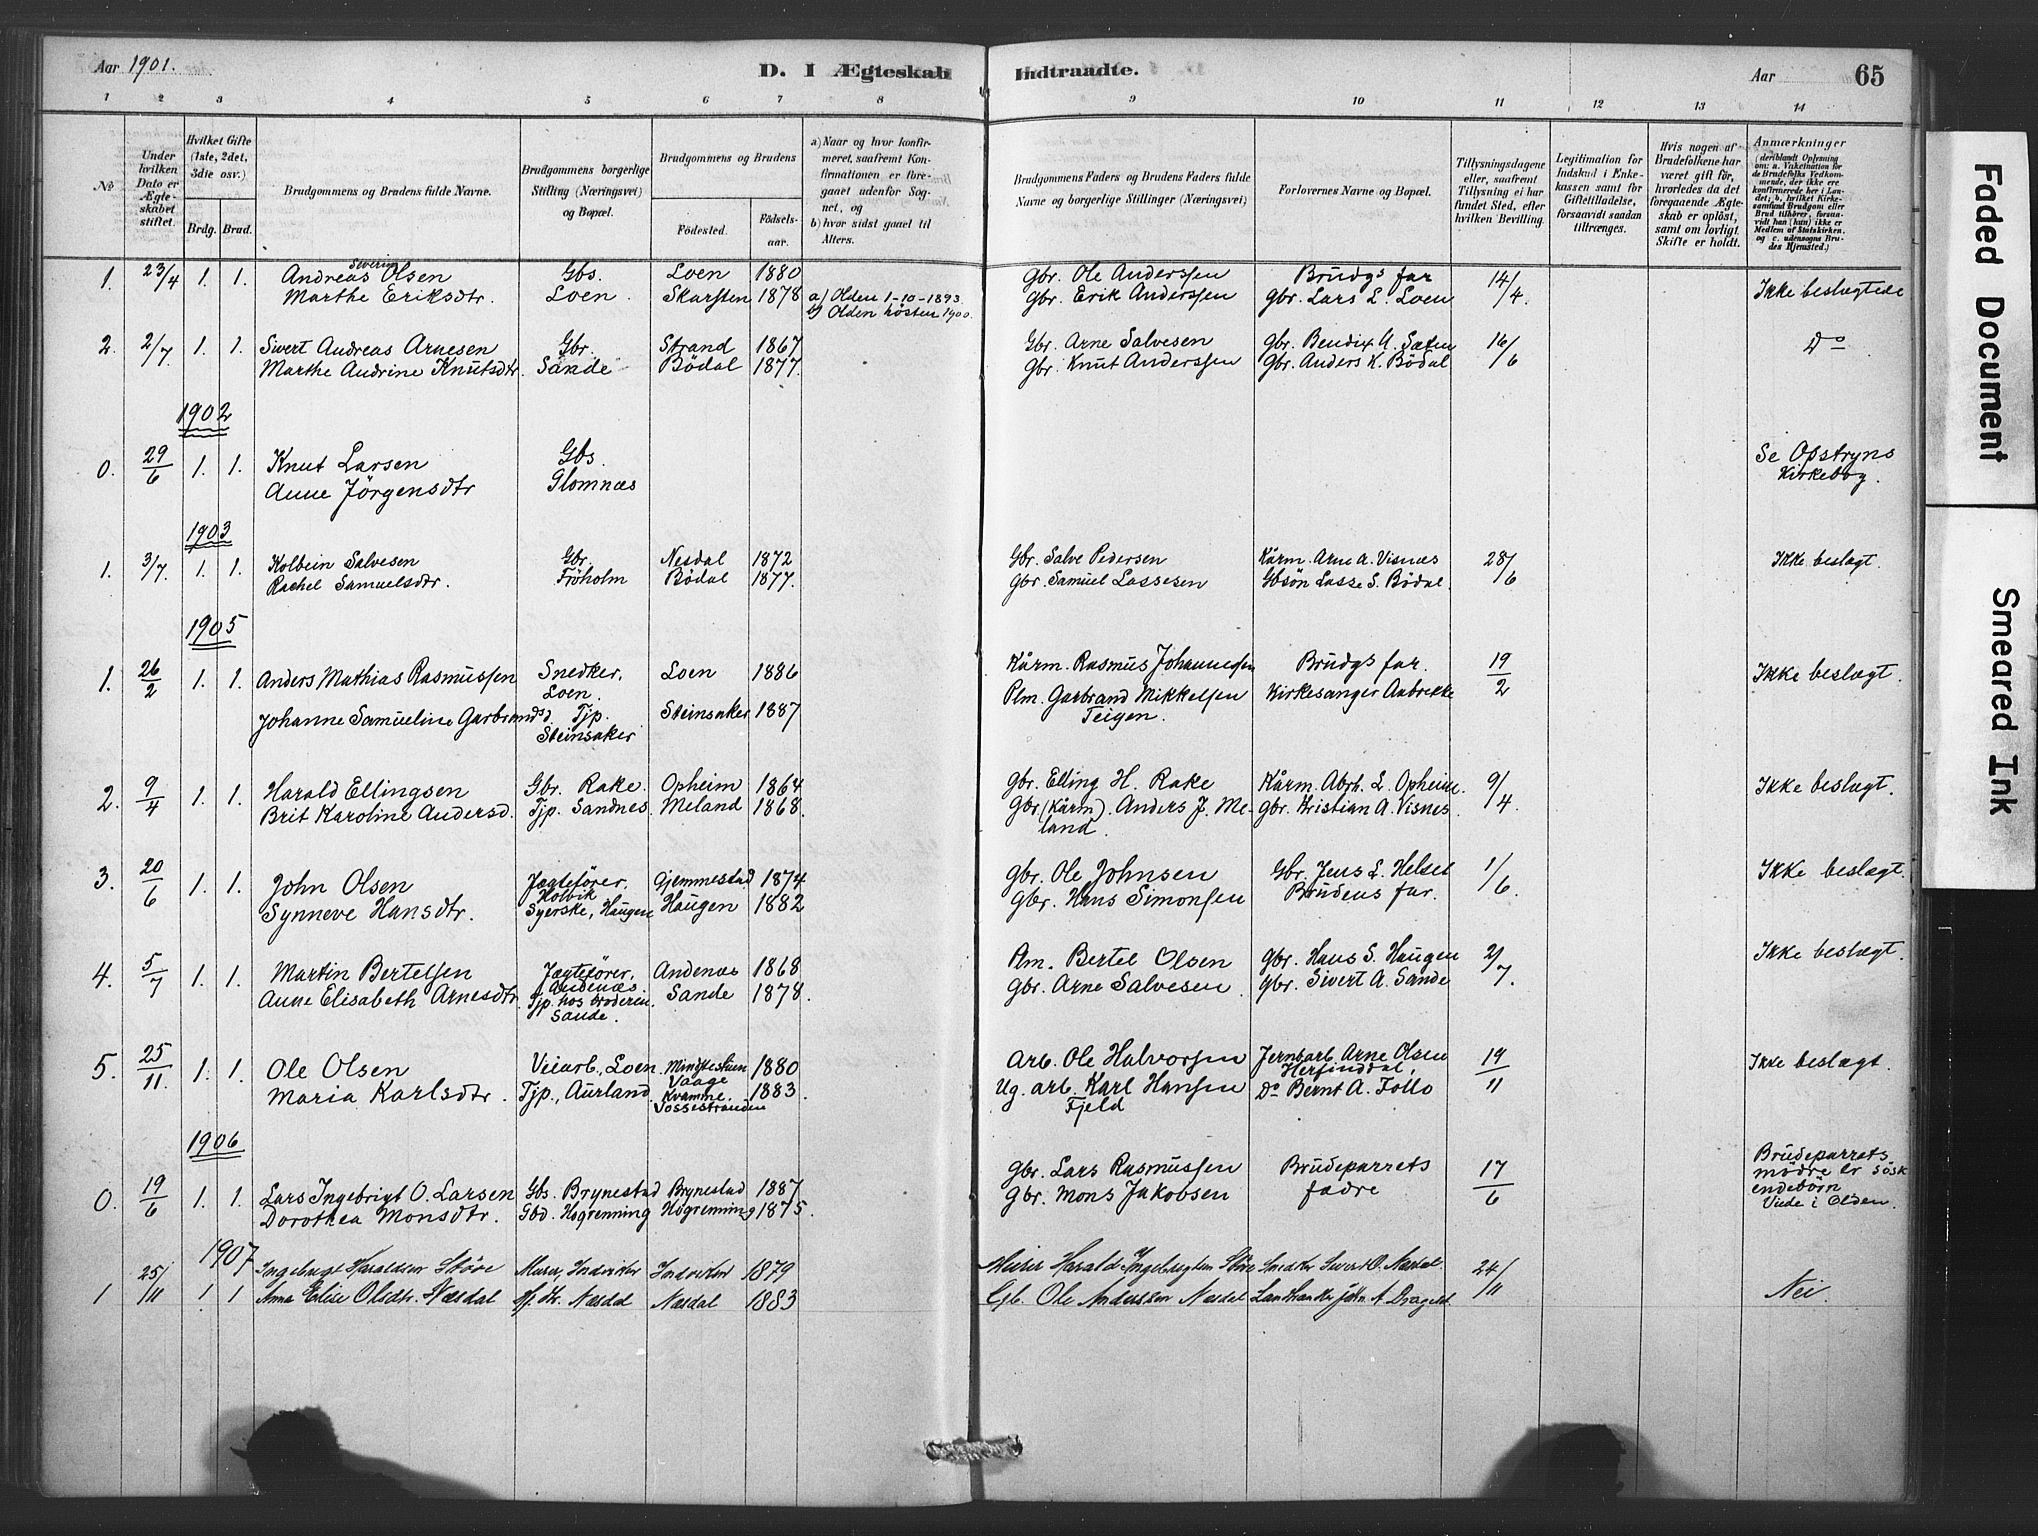 Aar 1901.
D. I Ægteskab Indtraadte.
Aar
65
1 2 3 4 5 6 7 8 9 10 11 12 13 14
No
Under hvilken Dato er Ægteskabet stiftet.
Hvilket Gifte (1ste, 2det, 3die osv.)
Brdg. Brud.
Brudgommens og Brudens fulde Navne.
Brudgommens borgerlige Stilling (Næringsvei) og Bopæl.
Brudgommens og Brudens
Fødested. Fødselsaar.
a) Naar og hvor konfirmeret, saafremt Konfirmationen er foregaaet udenfor Sognet, og
b) hvor sidst gaaet til Alters.
Brudgommens Faders og Brudens Faders fulde Navne og borgerlige Stillinger (Næringsvei)
Forlovernes Navne og Bopæl.
Tillysningsdagene eller, saafremt Tillysning ei har fundet Sted, efter hvilken Bevilling.
Legitimation for Indskud i Enkekassen samt for Giftetilladelse, forsaavidt saadan tiltrænges.
Hvis nogen af Brudefolkene har været gift før, hvorledes da det foregaaende Ægteskab er opløst, samt om lovligt Skifte er holdt.
Anmærkninger
(deriblandt Oplysning om: a. Vakcination for de Brudefolks Vedkommende, der ikke ere konfirmerede her i Landet; b. hvilket Kirkesamfund Brudgom eller Brud tilhører, forsaavidt han (hun) ikke er Medlem af Statskirken, og c. udensogns Brudes Hjemsted.)
1. 23/4 1. 1. Andreas Severin Olsen Gbs. Loen 1880 Gbr. Ole Anderssen Brudgs far 14/4. Ikke beslægtede
Marthe Eriksdtr. Loen. Skarsten 1878 a) Olden 1-10-1893. Gbr. Erik Anderssen Gbr. Lars L. Loen
b) Olden høsten 1900.
2. 2/7 1. 1. Sivert Andreas Arnesen Gbr. Strand 1867 Gbr. Arne Salvesen Gbr. Bendix A. Sæten 16/6 Do
Marthe Andrine Knutsdtr. Sande Bödal 1877. Gbr. Knut Anderssen Gbr. Anders K. Bödal
1902
0. 29/6 1. 1. Knut Larsen Gbs. Se Opstryns
Anne Jörgensdtr Glomnæs Kirkebog.
1903
1. 3/7. 1. 1. Kolbein Salvesen Gbr. Nesdal 1872 Gbr. Salve Pedersen Kårm. Arne A. Visnæs 28/6 Ikke beslægt.
Rachel Samuelsdtr. Fröholm Bödal 1877. Gbr. Samuel Lassesen Gbsön Lasse S. Bödal.
1905
1. 26/2 1. 1. Anders Mathias Rasmussen Snedker, Loen 1886 Kårm. Rasmus Johannessen Brudgs far. 19/2 Ikke beslægt.
Loen. Plm. Garbrand Mikkelsen Kirkesanger Aabrekke
Johanne Samueline Garbrandsd. Tjp. Steinsaker 1887 Teigen.
Steinsaker
2. 9/4 1. 1. Harald Ellingsen Gbr. Rake. Opheim 1864 Gbr. Elling H. Rake Kårm. Abrh. L. Opheim. 9/4. Ikke beslægt.
Brit Karoline Andersd. Tjp. Sandnes. Meland 1868. Gbr. (Kårm). Anders J. Me- Gbr. Kristian A. Visnes
land.
3. 20/6 1. 1. John Olsen Jægtefører, Gjemmestad 1874 Gbr. Ole Johnsen Gbr. Jens L. Helset 1/6. Ikke beslægt.
Holvik
Synneve Hansdtr. Syerske, Haugen Haugen 1882 Gbr. Hans Simonsen Brudens far.
4. 5/7 1. 1. Martin Bertelsen Jægtefører, Andenæs 1868 Plm. Bertel Olsen Gbr. Hans S. Haugen 2/7. Ikke beslægt.
Andenæs.
Anne Elisabeth Arnesdtr. Tjp. hos broderen. Sande 1878. Gbr. Arne Salvesen. Gbr. Sivert A. Sande
Sande.
5. 25/11. 1. 1. Ole Olsen Veiarb., Loen. Mindrestuen 1880 Arb. Ole Halvorsen Jernbarb. Arne Olsen 19/11 Ikke beslægt.
Vaage Herfinddal,
Maria Karlsdtr. Tjp., Aurland Kvamme, 1883. Ug. arb. Karl Hansen Do Bernt A. Follo
Vossestranden Fjeld
1906
0. 19/6 1. 1. Lars Ingebrigt O. Larsen Gbs. Brynestad Brynestad 1887 Gbr. Lars Rasmussen Brudeparrets 17/6 Brudeparrets
Dorothea Monsdtr. Gbd. Hogrenning Hogrenning 1875. Gbr. Mons Jakobsen fædre mødre er søsk
endebörn
Viede i Olden.
1907
1 25/11 1 1 Ingebrigt Haraldsen Störe Murer, Inderöen Inderöen 1879 Murer Harald Ingebrigtsen Störe Snedker Sivert O. Næsdal. 24/11 Nei.
Anna Elise Olsdtr. Næsdal Næsdal Næsdal 1883 Gb. Ole Anderssen Næsdal Landhandler John A Drageset.
Faded Document
Smeared Ink